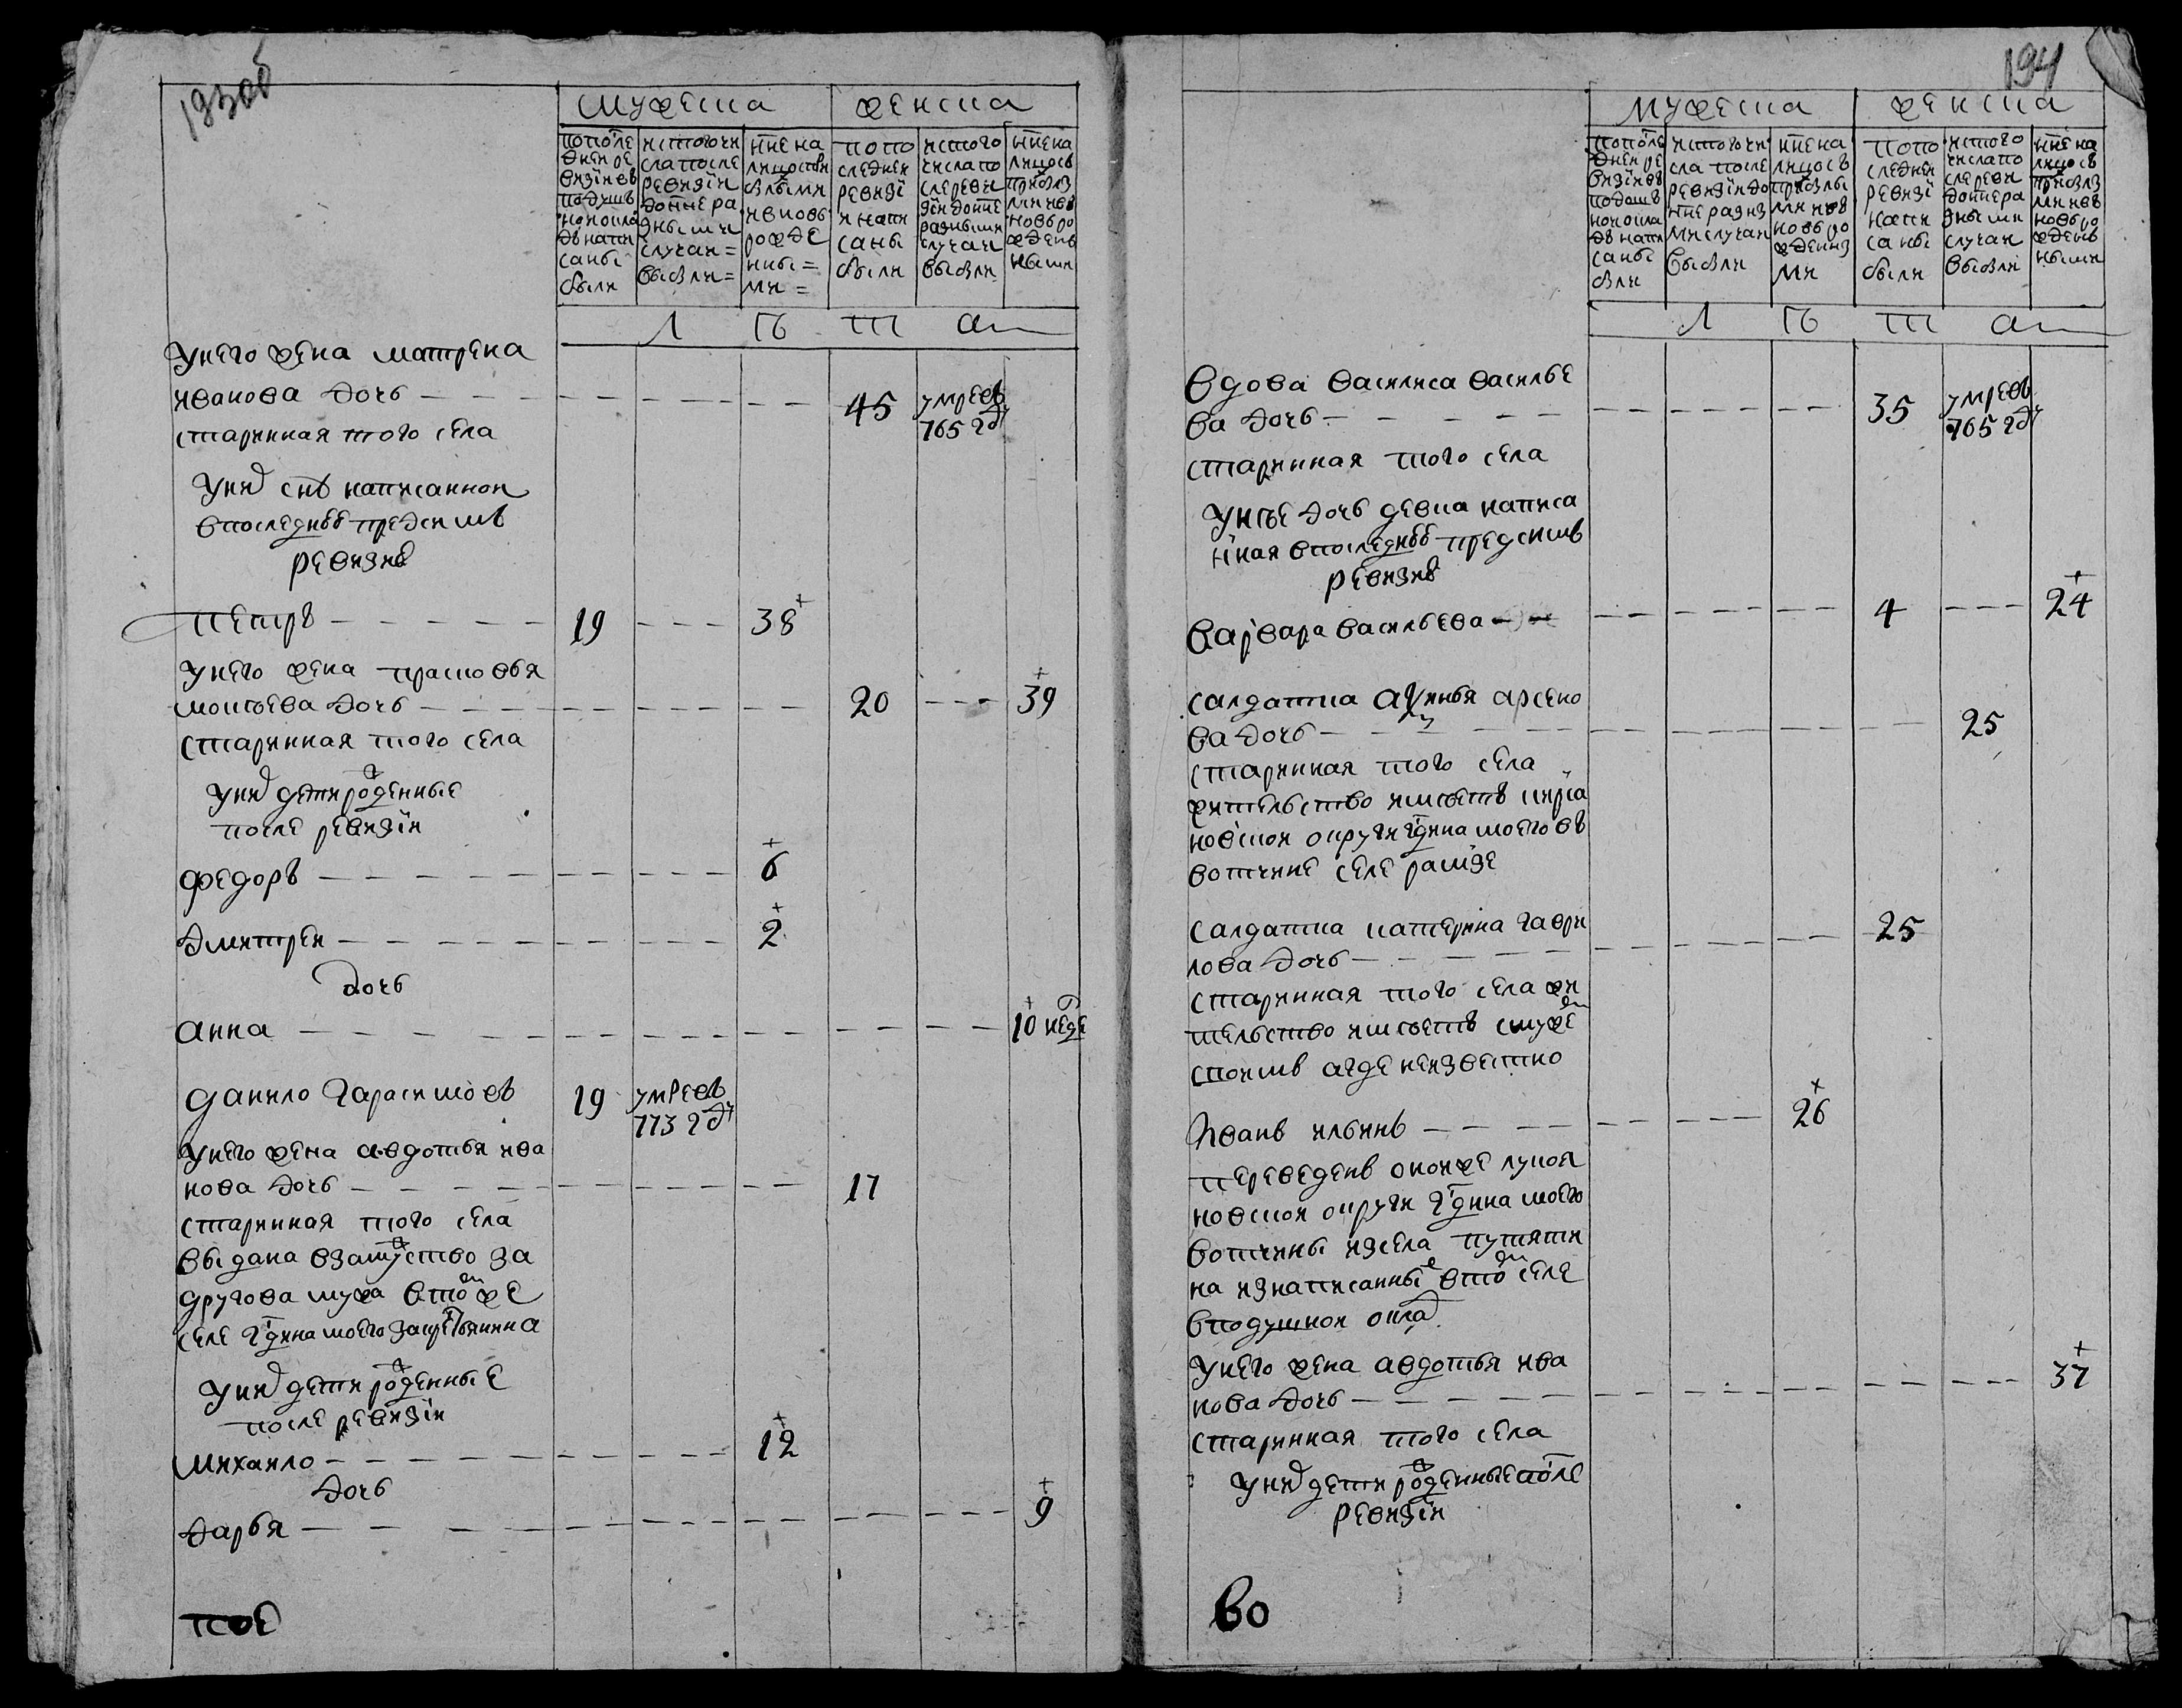 193об
мужеска женска
попосле
дней ре
визiи въ
подушъ
ной окла
дъ напи
саны
были
ис того чи
сла после
ревизiи
до ныне ра
зными
случаи =
выбыли =
ныне на
лицо съ при
былыми
и вновь
рожде
нны =
ми =
по по
следней
ревизi
и напи
саны
были
ис того
числа по
сле реви
зiи до ныне
разными
случаи
выбыли
ныне на
лицо съ
прибылы
ми и въ
новь ро
жден
ными
Л Ѣ Т А
У него жена матрена
иванова дочь 45 умре въ
765 годᵘ
старинная того села
У них снъ написанной
в последнѣй пред сим
ревизиѣ
петръ 19 38
У него жена прасковья
моисѣева дочь 20 39
старинная того села
У них дети рожденные
после ревизiи
федоръ 6
дмитрей 2
дочь
анна 10 неде
данило гарасимовъ 19 умре въ
773 годᵘ
У него жена авдотья ива
нова дочь 17
старинная того села
выдана в замужство за
другова мужа в том же
селе гдина моего за крестьянина
У них дети рожденные
после ревизiи
михаило 12
дочь
дарья 9
пое
194
мужеска женска
попосле
дней ре
визiи въ
подушъ
ной окла
дъ напи
саны
были
ис того чи
сла после
ревизiи до
ныне разны
ми случаи
выбыли
ныне на
лицо съ
прибылы
ми и въ
новь ро
жденны
ми
по по
следней
ревизi
напи
саны
были
ис того
числа по
сле реви
до ныне ра
зными
случаи
выбыли
ныне на
лицо съ
прибылы
ми и въ
новь ро
жден
ными
Л Ѣ Т А
вдова василиса василье
ва дочь 35 умре въ
765 годᵘ
старинная того села
У нее дочь девка написа
нная в последнѣй пред симъ
ревизиѣ
варвара васильева 4 24
салдатка арсено
ва дочь 25
старинная того села
жительство имѣетъ кирса
новской округи гдина моего въ
вотчине селе рамзе
салдатка катерина гаври 25
лова дочь
старинная того села жи
тельство имѣетъ с мужем
своимъ а где неизвестно
иванъ ильинъ 26
переведенъ оной же лукоя
новской округи гдина моего
вотчины из села путяти
на из написанных в том селе
в подушной оклад
У него жена авдотья ива
нова дочь 37
старинная того села
У них дети рожденные после
ревизiи
во